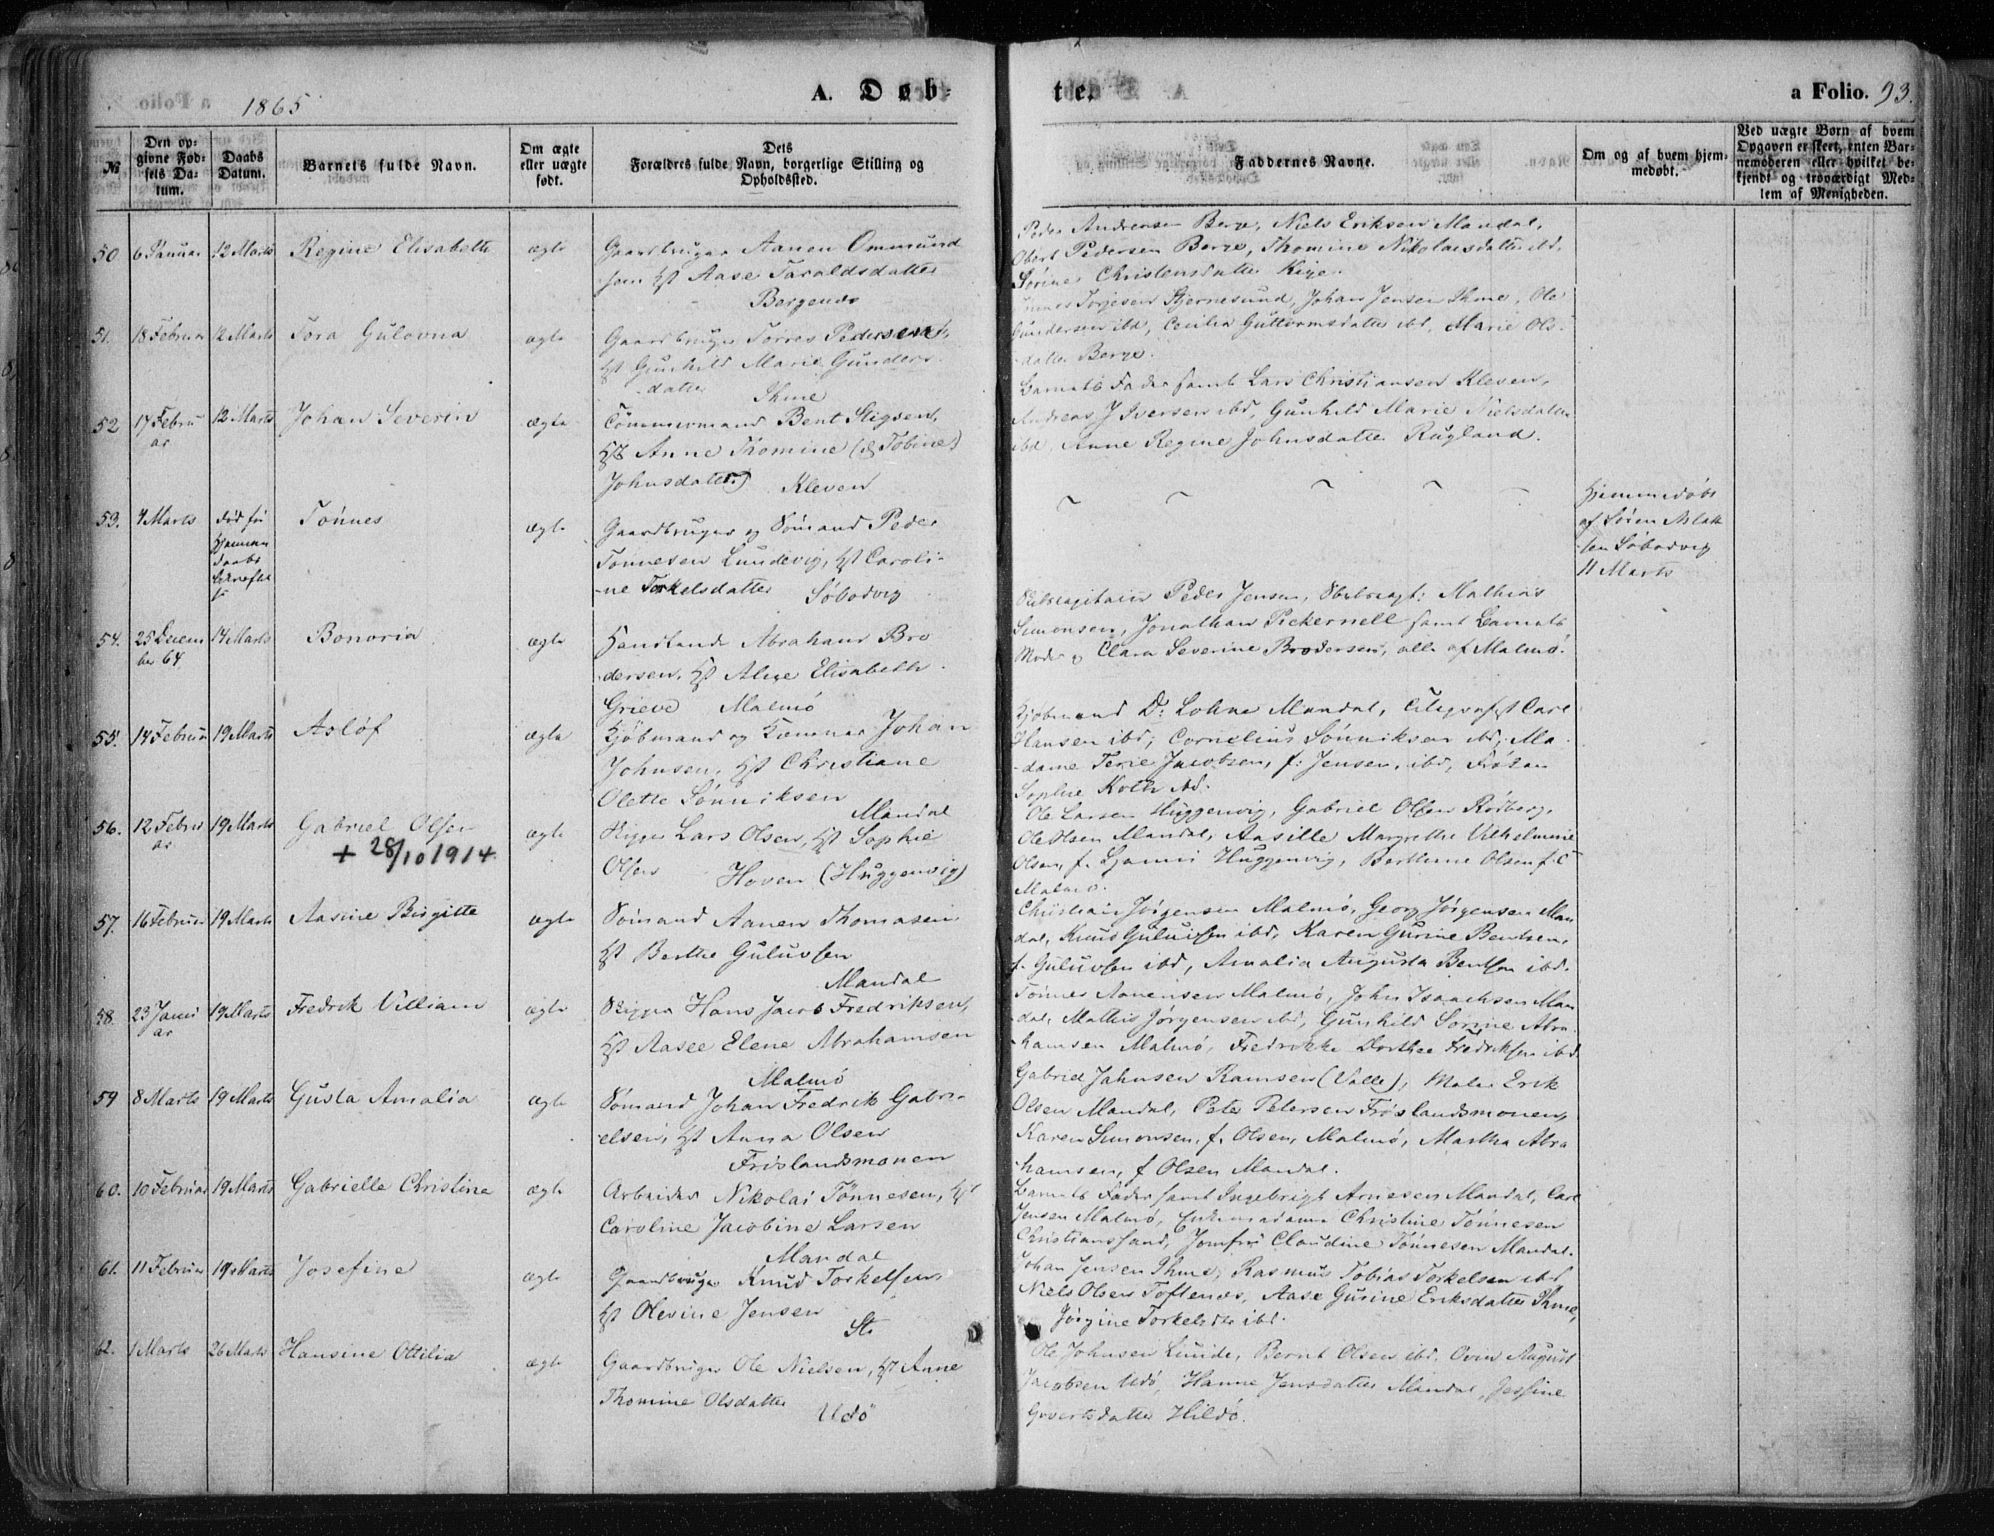 1865
A. Døb-
te.
a Folio. 93.
№
Den op-
givne Fød-
sels Da-
tum.
Daabs
Datum.
Barnets fulde Navn.
Om ægte
eller uægte
født.
Dets
Forældres fulde Navn, borgerlige Stilling og
Opholdssted.
Faddernes Navne.
Om og af hvem hjem-
medøbt.
Ved uægte Børn af hvem
Opgaven er skeet, enten Bar-
nemoderen eller hvilket be-
kjendt og troværdigt Med-
lem af Menigheden.
50 6 Januar 12 Marts Regine Elisabeth ægte Gaardbruger Aanen Ommund
sen Hst Aase Taraldsdatter
Peder Andreasen Berge, Niels Eriksen Mandal,
Pedersen Berge, Thomine Nikolaisdatter ibd.
Sørine Christensdatter
51. 18 Februar 12 Marts Tora Gulovna ægte Gaardbruger Torres Pedersen,
Hst Gunhild Marie Gunders-
datter Ihme
Torjesen Stjernesund, Johan Jensen Ihme, Ole
Gundersen ibd, Cecilia Guttormsdatter ibd, Marie Ols-
datter Berge.
52 17 Febru
ar 12 Marts Johan Severin ægte Tømmermand Bent Stigsen,
Hst Anne Thomine (Tobine)
Johnsdatter) Kleven
Barnets Fader samt Lars Christiansen Kleven,
Andreas J Iversen ibd, Gunhild Marie Nielsdatter
ibd, Anne Regine Johnsdatter Rugland.
53. 4 Marts død før
Tønnes ægte Gaardbruger og Sømand Peder
Tønnesen Lundevig, Hst Caroli-
ne Torkelsdatter Søbodvig
Hjemmedøbt
af Søren Aslak
sen Søbodvig
11 Marts
54. 25 Decem
ber 64. 14 Marts Bonoria ægte Abraham Bro
dersen, Hst Alice Elisabeth
Grieve Malmø
Skibscapitain Peder Jensen, Skibscapt: Mathias
Simonsen, Jonathan Pickernell samt Barnets
Moder og Clara Severine Brodersen, alle af Malmø.
55. 14 Februar 19 Marts Asløf ægte Kjøbmand og Kæmner Johan
Johnsen, Hst Christiane
Olette Sønniksen
Mandal
Kjøbmand D. Lohne Mandal, Carl
Hansen ibd, Cornelius Sønniksen ibd, Ma-
dame Terie Jacobsen, f. Jensen, ibd, Frøken
Sophie Koth ibd.
56. 12 Febru
ar 19 Marts Gabriel Olsen ægte Skipper Lars Olsen, Hst Sophie
+ 28/10 1914
Olsen Hoven (Huggenvig)
Ole Larsen Huggenvig, Gabriel Olsen Rødberg,
Ole Olsen Mandal, Aasille Margrethe Vilhelmine
Olsen, f. Huggenvig, Berthine Olsen f.
Malmø.
57. 16 Februar 19 Marts Aasine Birgitte ægte Sømand Aanen Thomasen
Hst Berthe Guluvsen
Mandal
Christian Jørgensen Malmø, Georg Jørgensen Man
dal, Knud Guluvsen ibd, Karen Gurine Bentsen,
f. Guluvsen ibd, Amalia Augusta Bentsen ibd.
58. 23 Janu
ar 19 Marts Fredrik Villiam ægte Skipper Hans Jacob Fredriksen,
Hst Aasee Elene Abrahamsen
Malmø
Tønnes Aanensen Malmø, John Isaachsen Man
dal, Mathis Jørgensen ibd, Gunhild Sorine Abra
hamsen Malmø, Fredrikke Dorthea Fredriksen ibd.
59 8 Marts 19 Marts Gusta Amalia ægte Sømand Johan Fredrik Gabri-
elsen, Hst Anna Olsen
Frøslandsmonen
Gabriel Jahnsen Ramsen (Valle), Maler Erik
Olsen Mandal, Peter Petersen Frøslandsmonen,
Karen Simonsen, f. Olsen, Malmø, Martha Abra
hamsen, f Olsen Mandal.
60. 10 Februar 19 Marts Gabrielle Christine ægte Arbeider Nikolai Tønnesen, Hst
Caroline Jacobine Larsen
Mandal
Barnets Fader samt Ingebrigt Arnesen Mandal, Carl
Jensen Malmø, Christine Tønnesen
Christianssand, Jomfru Claudine Tønnesen Mandal.
61. 11 Februar 19 Marts Josefine ægte Gaardbruger Knud Torkelsen,
Hst Olevine Jensen
Johan Jensen Ihme, Rasmus Tobias Torkelsen ibd
Niels Olsen Toftenes, Aase Gurine Eriksdatter Ihme,
Jørgine Torkelsdtr ibd.
62. 1 Marts 26 Marts Hansine Ottilia ægte Gaardbruger Ole Nielsen, Hst Anne
Thomine Olsdatter
Udø
Ole Johnsen Lunde, Bernt Olsen ibd. August
Jacobsen Udø, Hanne Jensdatter Mandal, Jessine
Govertsdatter Hildø.